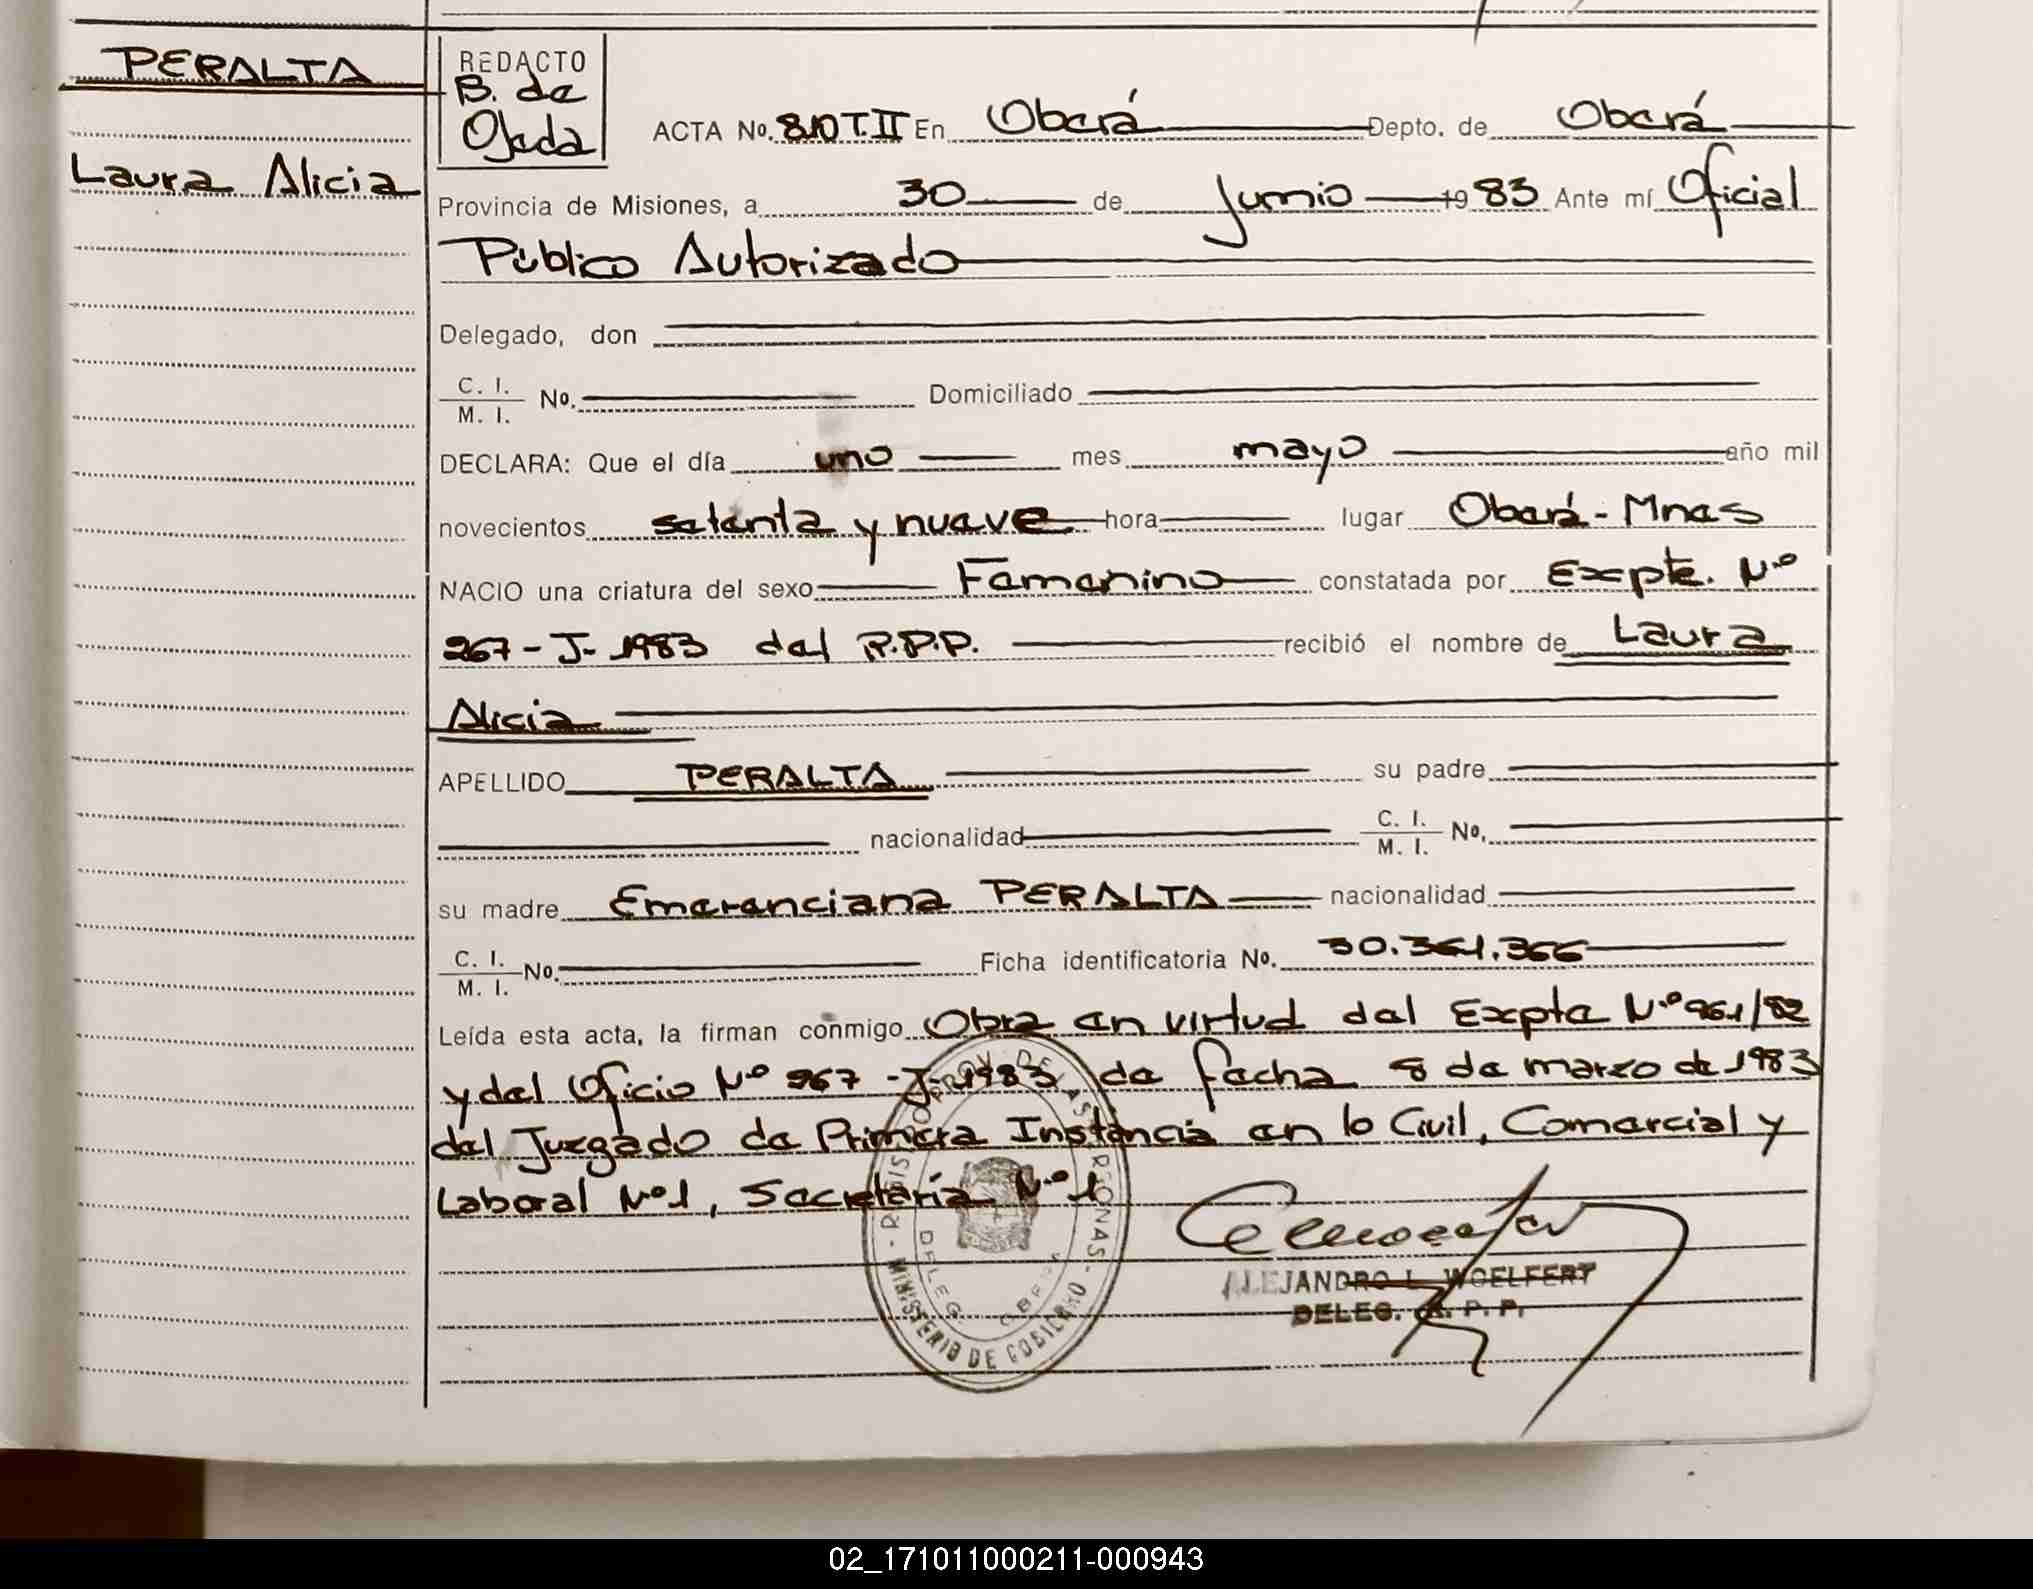 PERALTA
Laura Alicia
REDACTO
B. de
Ojeda
ACTA No. 810 T. II En Oberá Depto. de Oberá
Provincia de Misiones, a 30 de junio 1983 Ante mí Oficial
Público Autorizado
Delegado, don
C. I.
M. I. No. Domiciliado
DECLARA: Que el día uno mes mayo año mil
novecientos setenta y nueve hora lugar Oberá - Mnes
NACIO una criatura del sexo Femenino constatada por Expte. Nº
267 - J - 1983 del R.P.P. recibió el nombre de Laura
Alicia
APELLIDO PERALTA su padre
nacionalidad C. I.
M. I. No.
su madre Emerenciana PERALTA nacionalidad
C. I.
M. I. No. Ficha identificatoria No. 30.361.366
Leída esta acta, la firman conmigo Obra en virtud del Expte Nº 961/82
y del Oficio Nº 267 - J - 1983 de fecha 8 de marzo de 1983
del Juzgado de Primera Instancia en lo Civil, Comercial y
Laboral Nº 1, Secretaría Nº 1
REGISTRO PROV. DE LAS PERSONAS
DELEG.
MINISTERIO DE GOBIERNO
ALEJANDRO L. WOELFERT
DELEG. R. P. P.
02_171011000211-000943